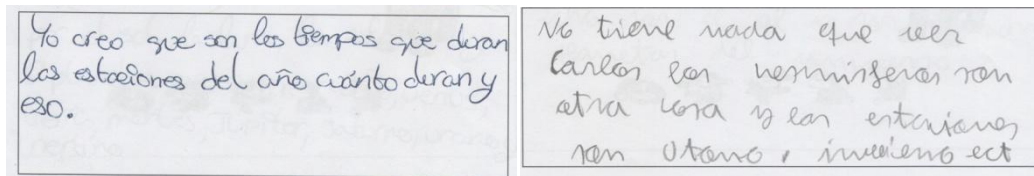 Yo creo que son los tiempos que duran
las estaciones del año cuánto duran y
eso.
No tiene nada que ver
Carlos los hemisferos son
otra cosa y las estaciones
son Otono, invierno ect